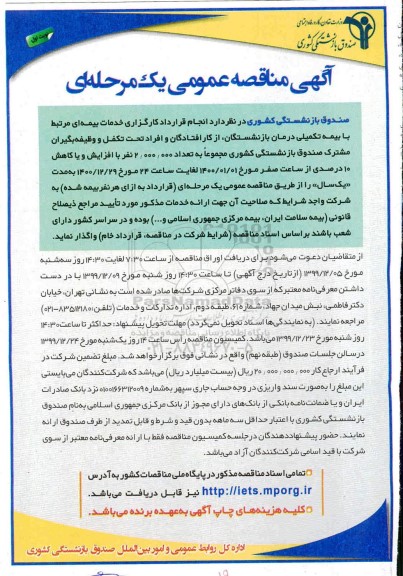 وزارت تعاون، کار و رفاه اجتماعی
صندوق بازنشستگی کشوری
نوبت اول
آگهی مناقصه عمومی یک مرحله‌ای
صندوق بازنشستگی کشوری در نظر دارد انجام قرارداد کارگزاری خدمات بیمه‌ای مرتبط
با بیمه تکمیلی درمان بازنشستگان، از کار افتادگان و افراد تحت تکفل و وظیفه‌بگیران
مشترک صندوق بازنشستگی کشوری مجموعاً به تعداد ۲,۰۰۰,۰۰۰ نفر با افزایش و یا کاهش
۱۰ درصدی از ساعت صفر مورخ ۱۴۰۰/۰۱/۰۱ لغایت ساعت ۲۴ مورخ ۱۴۰۰/۱۲/۲۹ به‌مدت
«یک‌سال» را از طریق مناقصه عمومی یک مرحله‌ای (قرارداد به ازای هر نفر بیمه شده) به
شرکت واجد شرایط که صلاحیت آن جهت ارائه خدمات مذکور مورد تأیید مراجع ذیصلاح
قانونی (بیمه سلامت ایران، بیمه مرکزی جمهوری اسلامی و...) بوده و در سراسر کشور دارای
شعب باشند براساس اسناد مناقصه (شرایط شرکت در مناقصه، قرارداد خام) واگذار نماید.
از متقاضیان دعوت می‌شود برای دریافت اوراق مناقصه از ساعت ۷:۳۰ لغایت ۱۴:۳۰ روز سه‌شنبه
مورخ ۱۳۹۹/۱۲/۰۵ (از تاریخ درج آگهی) تا ساعت ۱۴:۳۰ روز شنبه مورخ ۱۳۹۹/۱۲/۰۹ با در دست
داشتن معرفی‌نامه معتبر که از سوی دفاتر مرکزی شرکت‌ها صادر شده است به نشانی تهران، خیابان
دکتر فاطمی، نبش میدان جهاد، شماره ۶۱، طبقه دوم، اداره تدارکات و خدمات (تلفن:
مراجعه نمایند. (به نمایندگی‌ها اسناد تحویل نمی‌گردد) مهلت تحویل پیشنهاد: حداکثر تا ساعت ۱۴:۳۰
روز شنبه مورخ ۱۳۹۹/۱۲/۲۳ می‌باشد. کمیسیون مناقصه راس ساعت ۱۴ روز یک‌شنبه مورخ ۱۳۹۹/۱۲/۲۴
در سالن جلسات صندوق (طبقه نهم) واقع در نشانی فوق برگزار خواهد شد. مبلغ تضمین شرکت در
فرآیند ارجاع کار ۲۰,۰۰۰,۰۰۰,۰۰۰ ریال (بیست میلیارد ریال) می‌باشد که شرکت‌کنندگان می‌بایستی
این مبلغ را به‌صورت سند واریزی در وجه حساب جاری سپهر به‌شماره نزد بانک صادرات
ایران و یا ضمانت‌نامه بانکی از بانک‌های دارای مجوز از بانک مرکزی جمهوری اسلامی به‌نام صندوق
بازنشستگی کشوری با اعتبار حداقل سه ماهه بدون قید و شرط و قابل تمدید از طرف صندوق ارائه
نمایند. حضور پیشنهاددهندگان در جلسه کمیسیون مناقصه فقط با ارائه معرفی‌نامه معتبر از سوی
شرکت با قید اسامی شرکت‌کنندگان آزاد می‌باشد.
تمامی اسناد مناقصه مذکور در پایگاه ملی مناقصات کشور به آدرس
http://iets.mporg.ir نیز قابل دریافت می‌باشد.
کلیه هزینه‌های چاپ آگهی به‌عهده برنده می‌باشد.
اداره کل روابط عمومی و امور بین‌الملل صندوق بازنشستگی کشوری